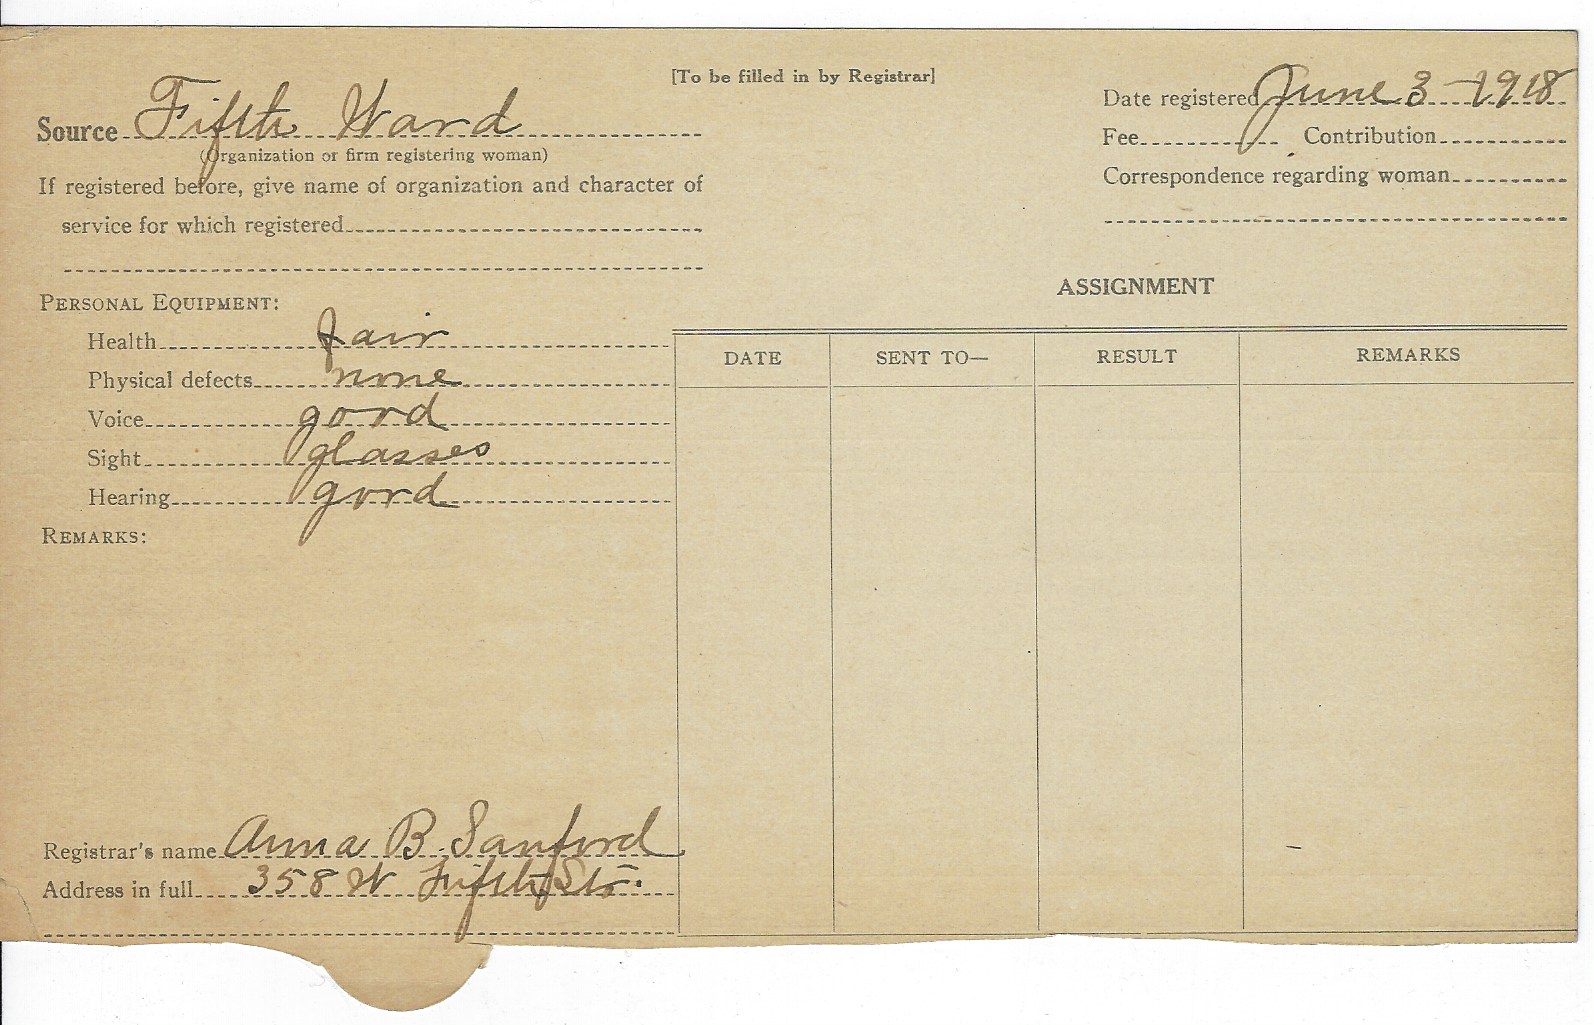 [To be filled in by Registrar]
Source Fifth Ward
(Organization or firm registering woman)
If registered before, give name of organization and character of
service for which registered
Date registered June 3 - 1918
Fee Contribution
Correspondence regarding woman
PERSONAL EQUIPMENT:
Health fair
Physical defects none
Voice good
Sight glasses
Hearing good
REMARKS:
Registrar's name Anna B. Sanford
Address in full 358 W Fifth Str.
ASSIGNMENT
DATE SENT TO— RESULT REMARKS